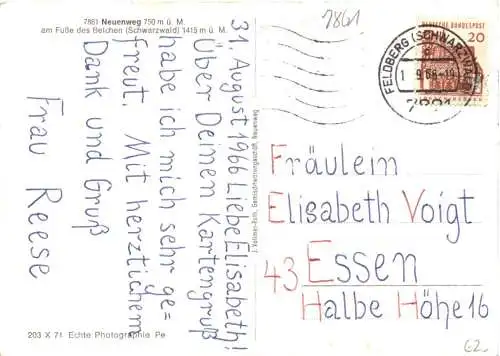 7861 Neuenweg 750 m ü. M.
am Fuße des Belchen (Schwarzwald) 1415 m ü. M.
31. August 1966 Liebe Elisabeth!
Über Deinen Kartengruß
habe ich mich sehr ge=
freut. Mit herztichem
Dank und Gruß
Frau Reese
203 X 71 Echte Photographie Pe
Gemischtwarengeschäft, Neuenweg
7861
FELDBERG (SCHWARZWALD)
1 9.66-19
7821
DEUTSCHE BUNDESPOST
20
Fräulein
Elisabeth Voigt
43 Essen
Halbe Höhe 16